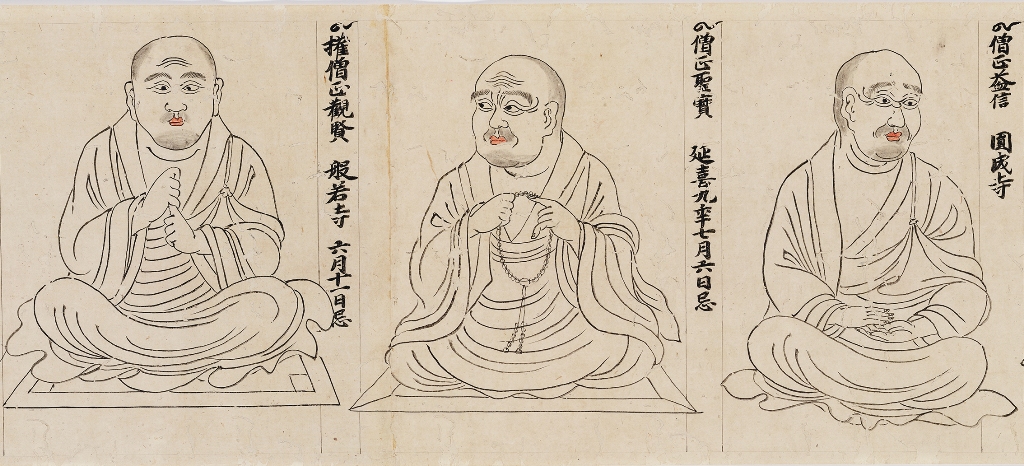 僧正益信 圓成寺
僧正聖寳 延喜九年七月六日忌
権僧正觀賢 般若寺 六月十一日忌